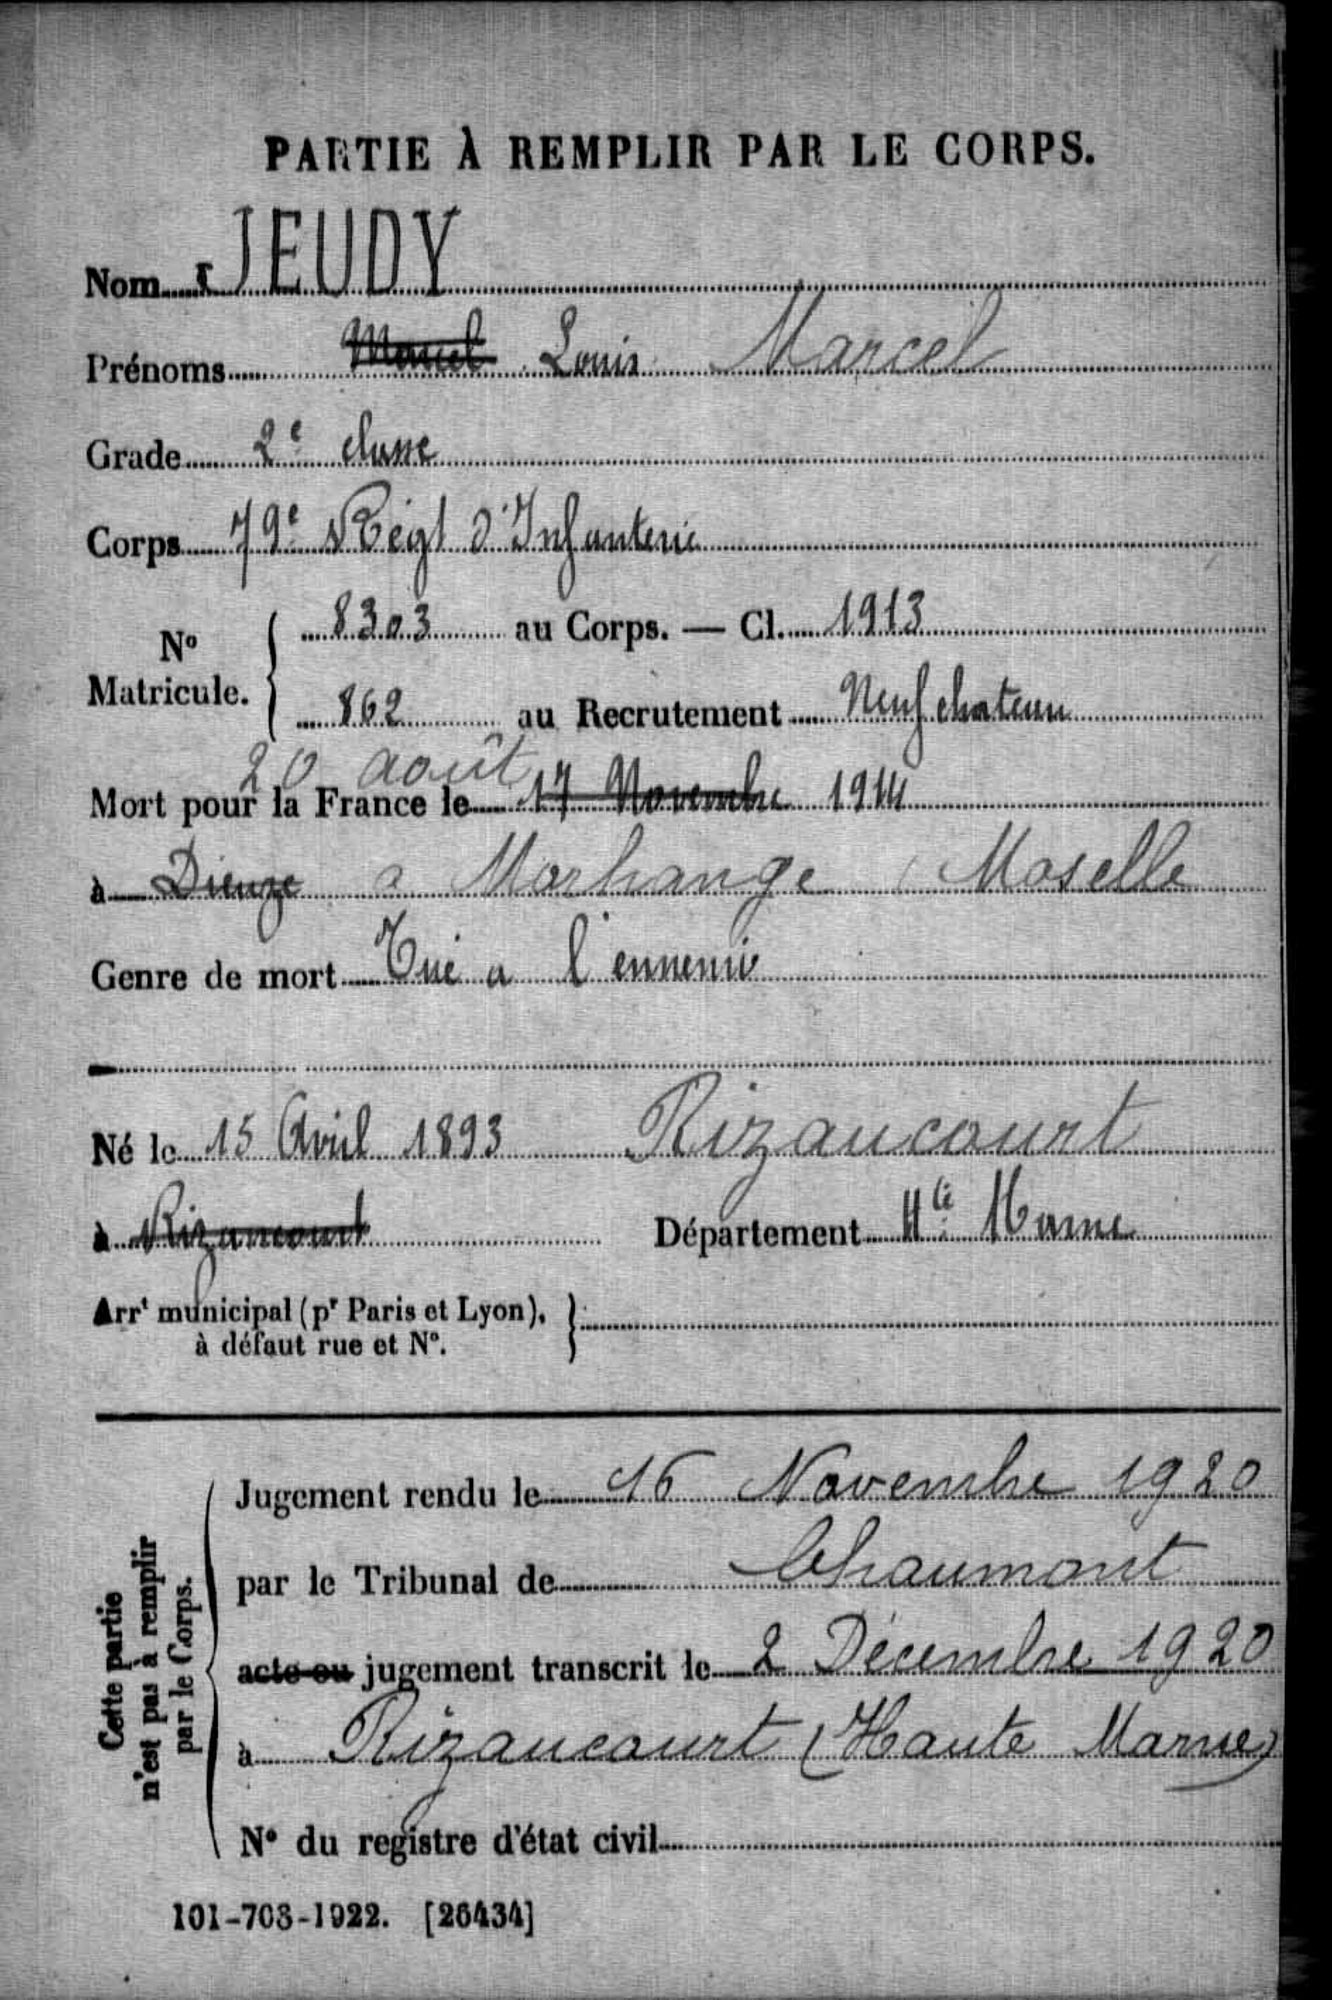 PARTIE À REMPLIR PAR LE CORPS.
Nom JEUDY
Prénoms Marcel Louis Marcel
Grade 2e classe
Corps 79e Régt d'Infanterie
No Matricule. 8303 au Corps. — Cl. 1913
862 au Recrutement Neufchateau
20 août
Mort pour la France le 17 Novembre 1914
à Dieuze a Morhange (Moselle
Genre de mort Tué a l'ennemi
Né le 15 Avril 1893 Rizaucourt
à Rizancourt Département Hte Marne
Arrt municipal (pr Paris et Lyon),
à défaut rue et No.
Cette partie
n'est pas à remplir
par le Corps.
Jugement rendu le 16 Novembre 1920
par le Tribunal de Chaumont
acte ou jugement transcrit le 2 Décembre 1920
à Rizaucourt (Haute Marne)
No du registre d'état civil
101-708-1922. [26434]